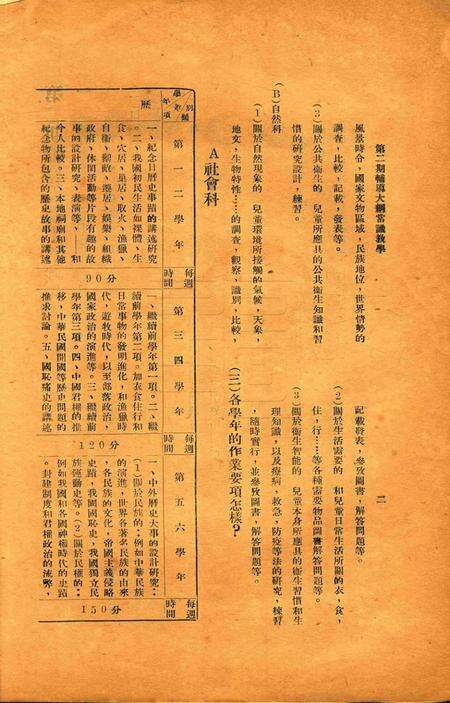 第二期輔導大綱常識教學
二
風景時令，國家文物區域，民族地位，世界情勢的
調查，比較，記載，發表等。
(3)關於公共衞生的　兒童所應具的公共衞生知識和習
慣的研究設計，練習。
(B)自然科
(1)關於自然現象的　兒童環境所接觸的氣候，天象，
地文，生物特性……的調查，觀察，識別，比較，
記載發表，參攷圖書，解答問題等。
(2)關於生活需要的　和兒童日常生活所關的衣，食，
住，行……等各種需要物品圖書解答問題等。
(3)關於衞生智能的　兒童本身所應具的衞生習慣和生
理知識，以及疫病，救急，防疫等法的研究，練習
，隨時實行，並參攷圖書，解答問題等。
(三)各學年的作業要項怎樣？
A 社會科
學年
別
項
第一二學年
每週時間
第三四學年
每週時間
第五六學年
每週時間
歷
一、紀念日歷史事蹟的講述研究
。二、我國初民生活如裸體、生
食、穴居、巢居、取火、漁獵、
自衞、游牧、遷居、娛樂、組織
政府、休閒活動等片段有趣的故
事的設計研究、表演等、——和
今人比較。三、本地祠廟和其他
紀念物所包含的歷史故事的講述
90分
一、繼續前學年第一項。二、繼
續前學年第二項。加衣食住行和
日常事物的發明進化，和漁獵時
代，遊牧時代，以至部落政治，
國家政治的演進等。三、繼續前
學年第三項。四、中國君權的推
移，中華民國開國等歷史問題的
推求討論。五、國恥痛史的講述
120分
一、中外歷史大事的設計研究：
(1)關於民族的：例如中華民族
的演進，世界各著名民族的由來
，各民族的文化，帝國主義侵略
史蹟，我國國恥史，我國獨立民
族運動史等。(2)關於民權的：
例如我國和各國神權時代的史蹟
。封建制度和君權政治的流弊，
150分